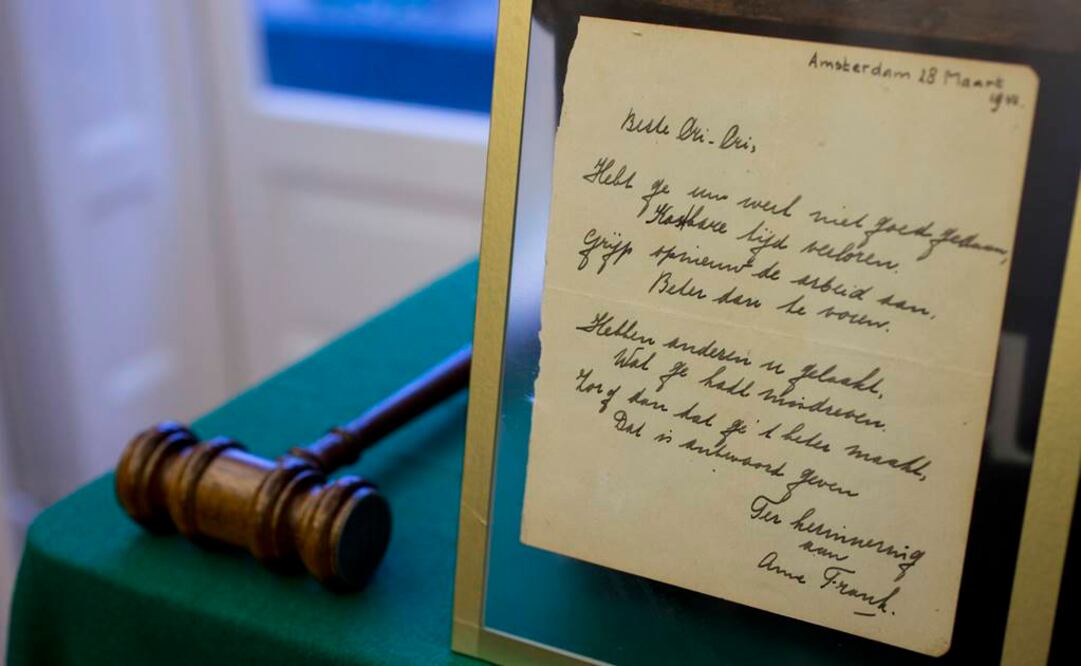 Amsterdam 28 Maart
Beste Cri-Cri,
Hebt ge uw werk niet goed gedaan,
Kostbare tijd verloren.
Grijp opnieuw de arbeid aan,
Beter dan te voren.
Hebben anderen u gelaakt,
Wat ge hadt misdreven.
Zorg dan dat ge 't beter maakt,
Dat is antwoord geven
Ter herinnering
aan
Anne Frank.